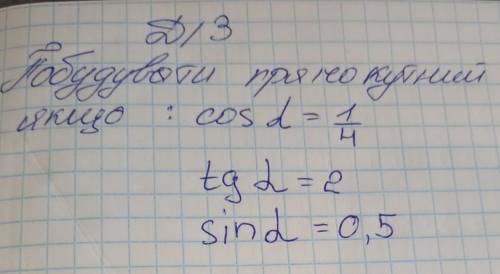 Д/З
Побудувати прямокутний
якщо : cos α = 1/4
tg α = 2
sin α = 0,5